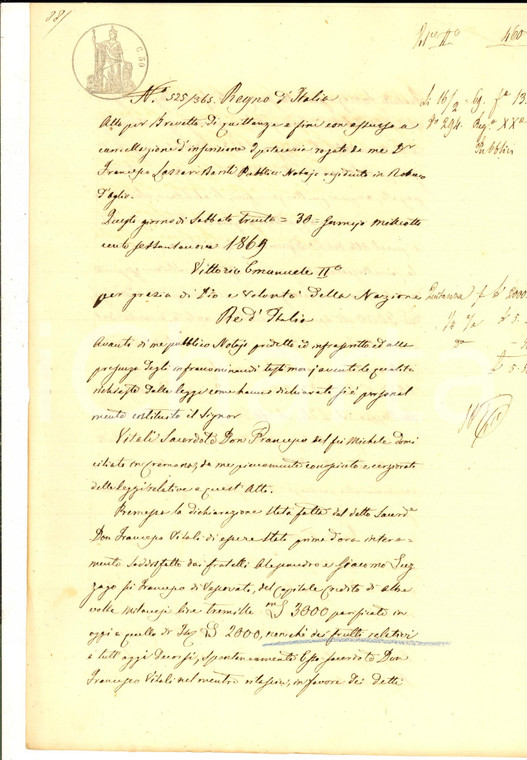 88/
C. 50
N.° 525/365. Regno d'Italia
Atto per Brevetto di quittanza e fine con assenso a
cancellazione d'inscrizione Ipotecaria rogato da me Dr
Francesco Pubblico Notajo residente in Robecco
d'Oglio.
Questo giorno di Sabbato trenta = 30 = Gennajo mille otto
cento sessantanove 1869
Vittorio Emanuele II°
per grazia di Dio e Volontà della Nazione
Re d'Italia
Avanti di me pubblico Notajo predetto ed infrascritto ed alla
presenza degli infranominati testimonj aventi le qualità
richieste dalla legge come hanno dichiarato si è personal
mente costituito il Signor
Vitali Sacerdote Don Francesco del fu Michele domi
ciliato in Cremona, da me pienamente conosciuto e
delle leggi relative a quest'Atto.
Premessa la dichiarazione stata fatta dal detto Sacerd.e
Don Francesco Vitali di essere stato prima d'ora intera
mente soddisfatto dai fratelli Alessandro e Giacomo Luz
zago fu Francesco di Vescovato, del capitale Credito di altre
volte lire tremille 3000 parificato in
oggi a quello di 2000, nonchè dei frutti relativi
a tutt'oggi decorsi, spontaneamente Esso sacerdote Don
Francesco Vitali nel mentre in favore dei detti
460
Li 16/2 Eg. f.a 13
N° 294 Reg.° XX°
Pubblici
Quitanza f 2000